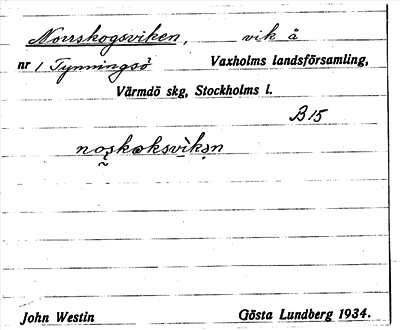 Norrskogsviken, vik å
nr 1 Tynningsö Vaxholms landsförsamling,
Värmdö skg, Stockholms l.
B15
John Westin Gösta Lundberg 1934.